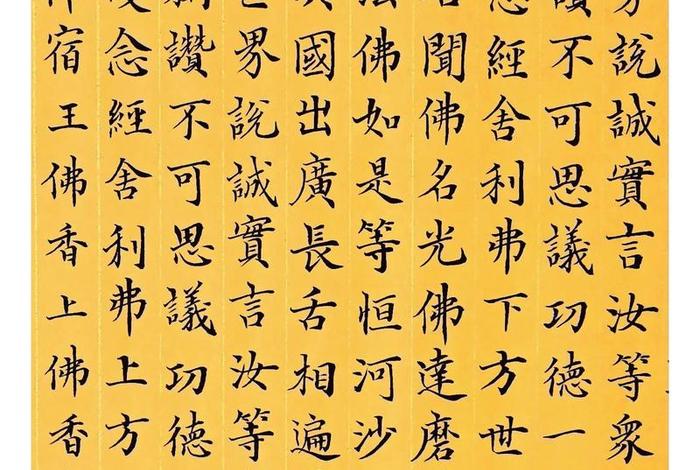 說誠實言汝等眾
不可思議功德一
念經舍利弗下方世
聞佛名光佛達磨
法佛如是等恒河沙
國出廣長舌相遍
界說誠實言汝等
讚不可思議功德
念經舍利弗上方
宿王佛香上佛香